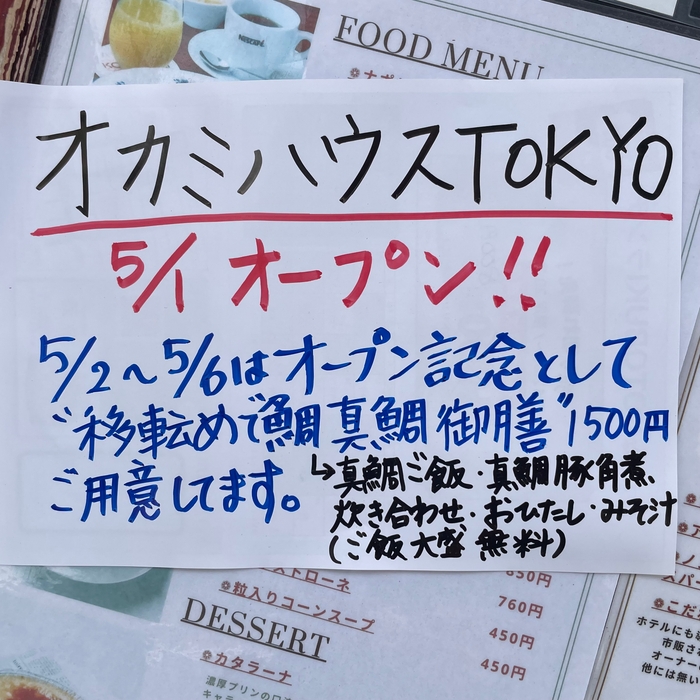 FOOD MENU
オカミハウスTOKYO
5/1 オープン!!
5/2~5/6はオープン記念として
"移転めで鯛真鯛御膳"1500円
ご用意してます。
↳真鯛ご飯・真鯛豚角煮、
炊き合わせ・おひたし・みそ汁
(ご飯大盛無料)
ストローネ
850円
❁粒入りコーンスープ
760円
DESSERT
450円
❁カタラーナ
450円
濃厚プリンの口
❁こだ
ホテルにも
市販さ
オーナー
他には無い